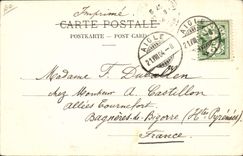 Imprimé
CARTE POSTALE
POSTKARTE - POST CARD
AIGLE
21.VIII.04-8
AIGLE
21.VIII.04-8
5
Madame F.
chez Monsieur A. Castellon
allées Tournefort
Bagnères-de-Bigorre (Htes Pyrénées)
France